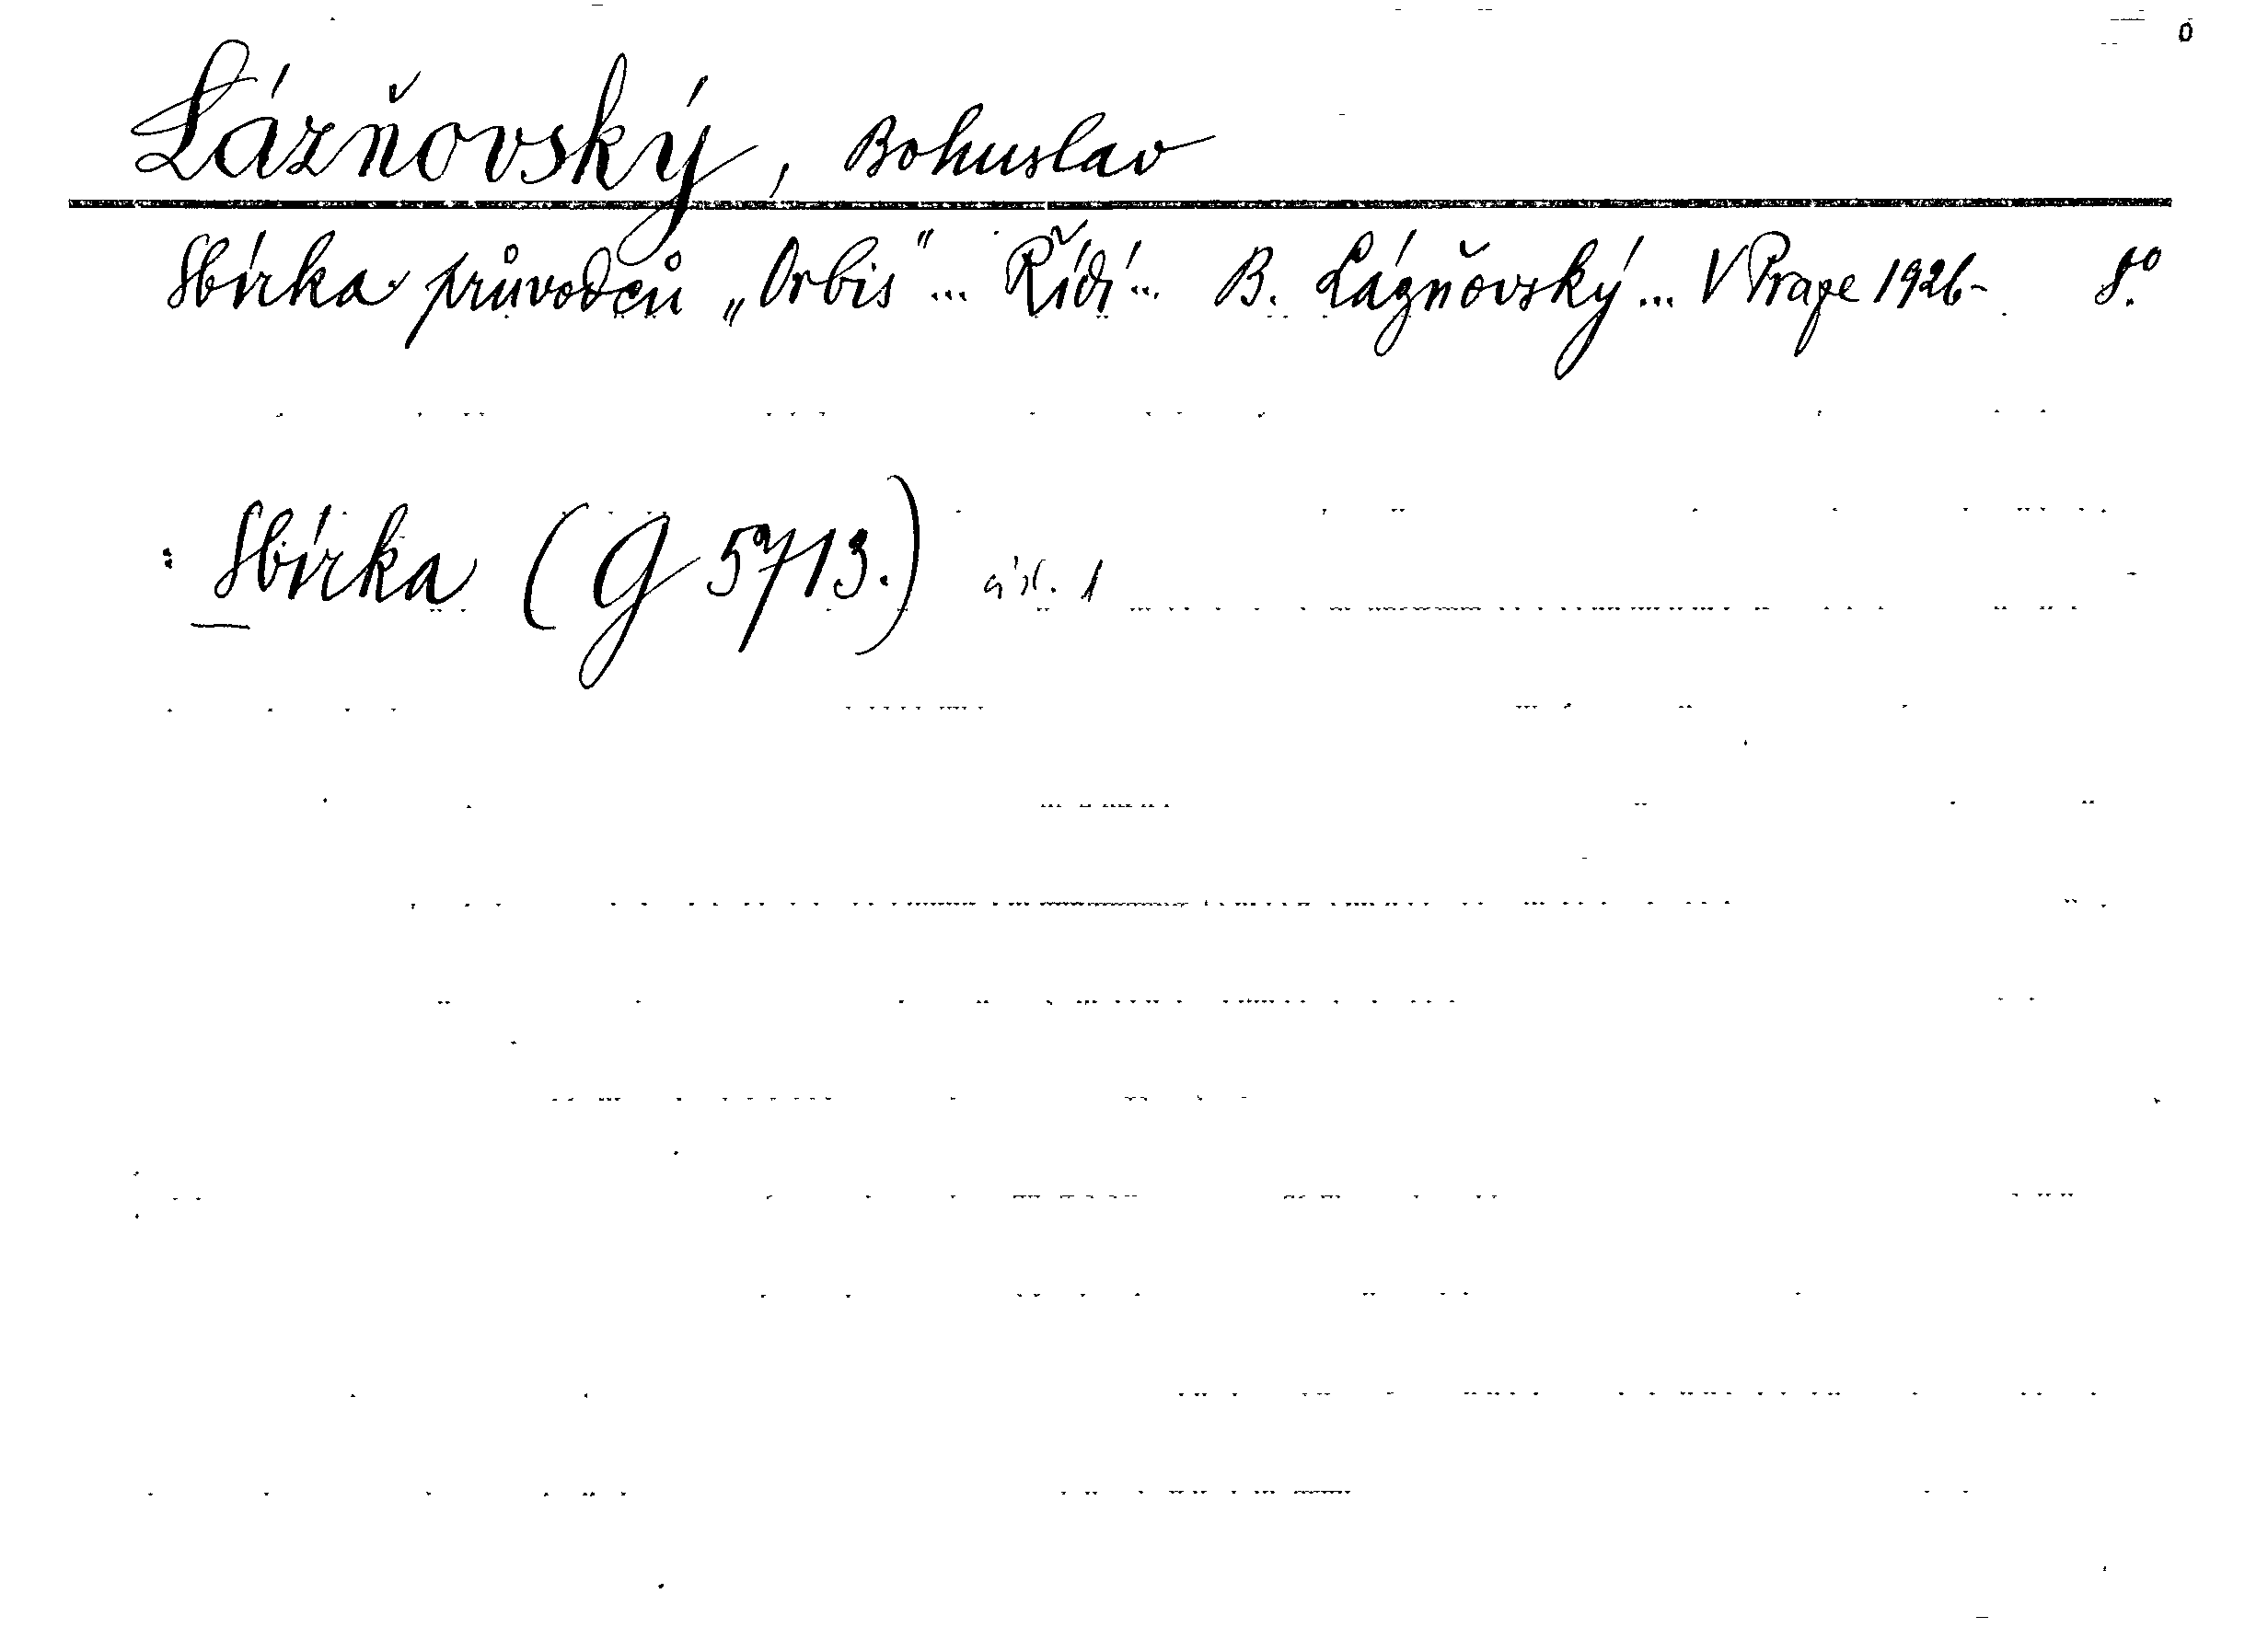 Lázňovský, Bohuslav
Sbírka průvodců „Orbis"... Řídí... B. Lázňovský... V Praze 1926- 8.º
: Sbírka (G 5713.) čís. 1